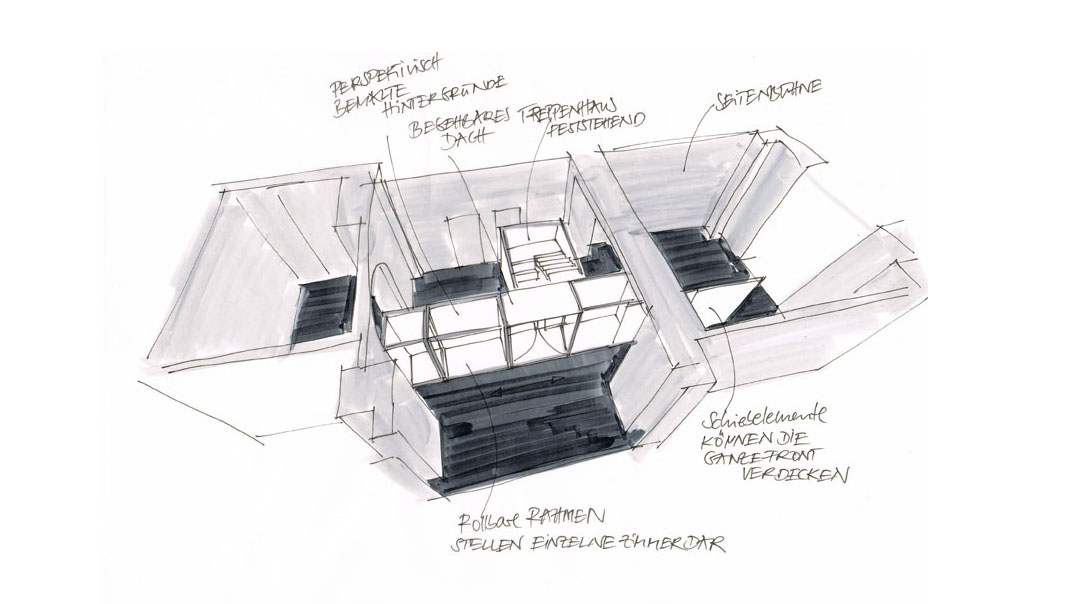 PERSPEKTIVISCH
BEMALTE
HINTERGRÜNDE
BEGEHBARES
DACH
TREPPENHAUS
FESTSTEHEND
SEITENBÜHNE
Schiebelemente
KÖNNEN DIE
GANZE FRONT
VERDECKEN
Rollbare RAHMEN
STELLEN EINZELNE ZIMMER DAR